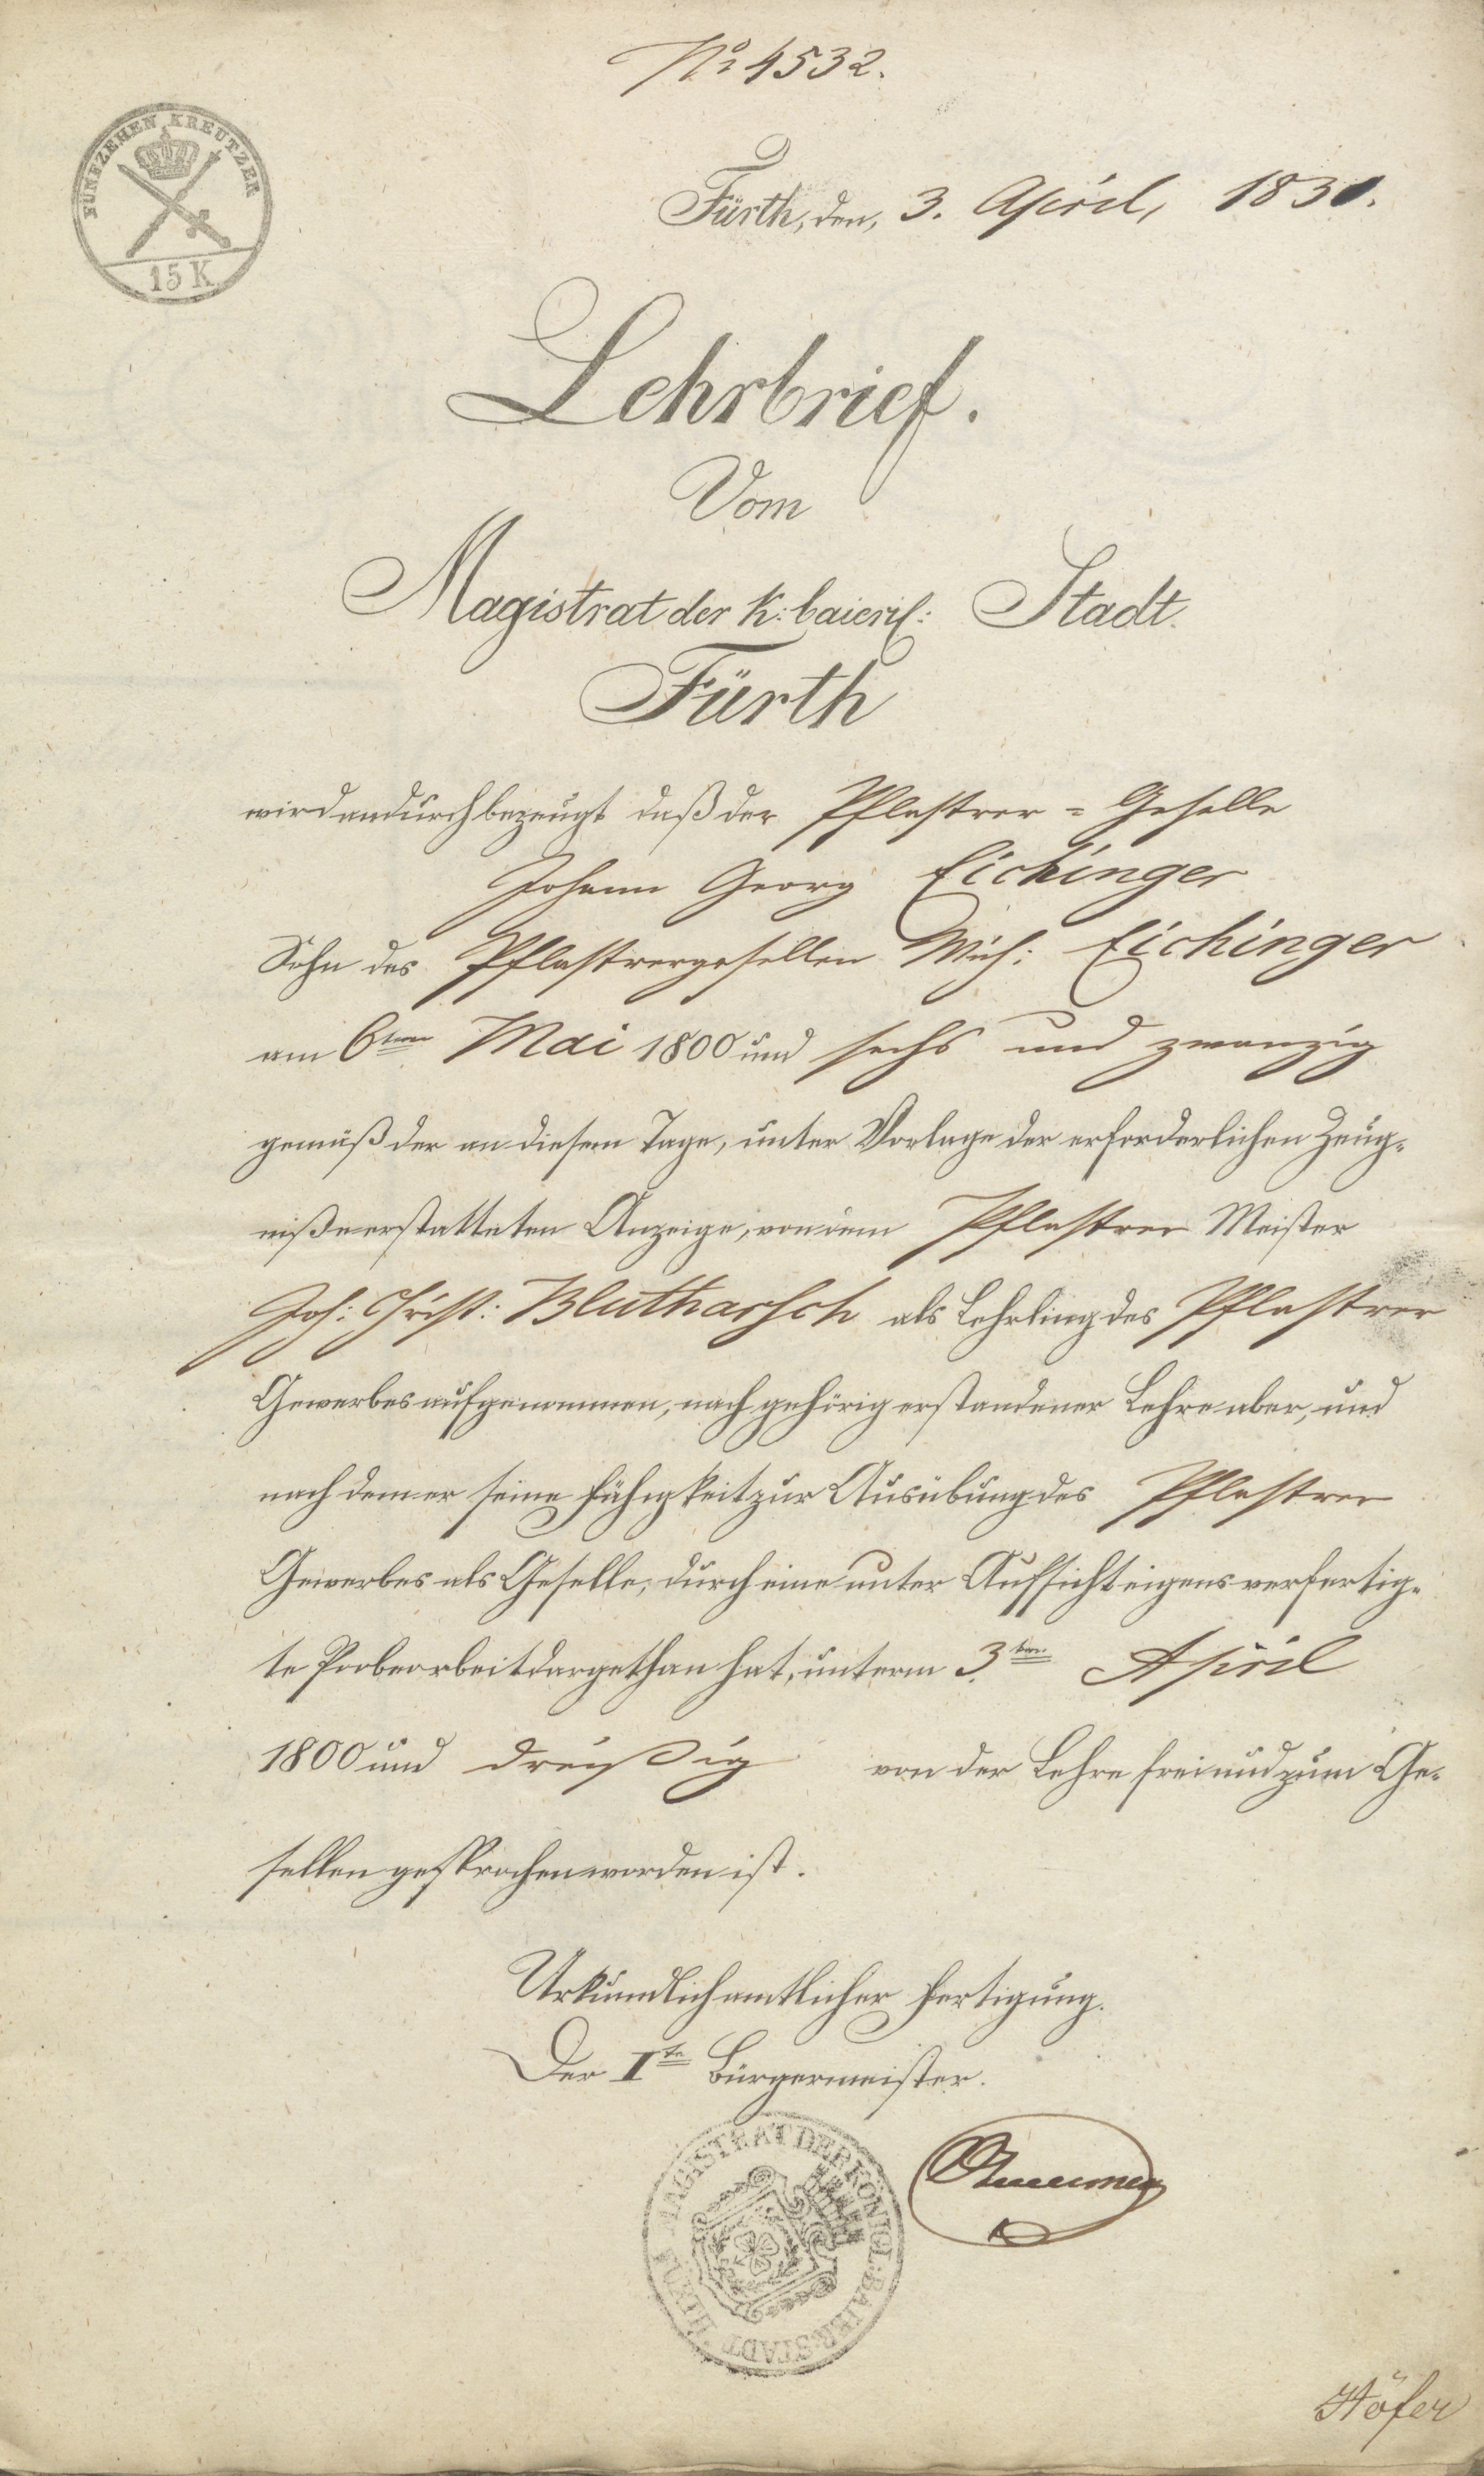 No 4532.
FÜNFZEHEN KREUTZER
15 K
Fürth, den, 3. April, 1830.
Lehrbrief.
Vom
Magistrat der K: baierisch: Stadt
Fürth
wird andurch bezeugt daß der Pflastrer = Geselle
Johann Georg Eichinger
Sohn des Pflastrergesellen Mich: Eichinger
am 6ten Mai 1800 und sechs und zwanzig
gemäß der an diesem Tage, unter Vorlage der erforderlichen Zeug=
niße erstatteten Anzeige, von dem Pflastrer Meister
Joh: Christ: Blutharsch als Lehrling des Pflastrer
Gewerbes aufgenommen, nach gehörig erstandener Lehre aber, und
nach dem er seine Fähigkeit zur Ausübung des Pflastrer
Gewerbes als Geselle, durch eine unter Aufsicht eigens verfertig=
te Probearbeit dargethan hat, unterm 3ten April
1800 und dreißig von der Lehre frei und zum Ge=
sellen gesprochen worden ist.
Urkundlich amtlicher Fertigung.
Der Ite Bürgermeister.
MAGISTRAT DER KÖNIGL: BAIER: STADT FÜRTH
Höfer